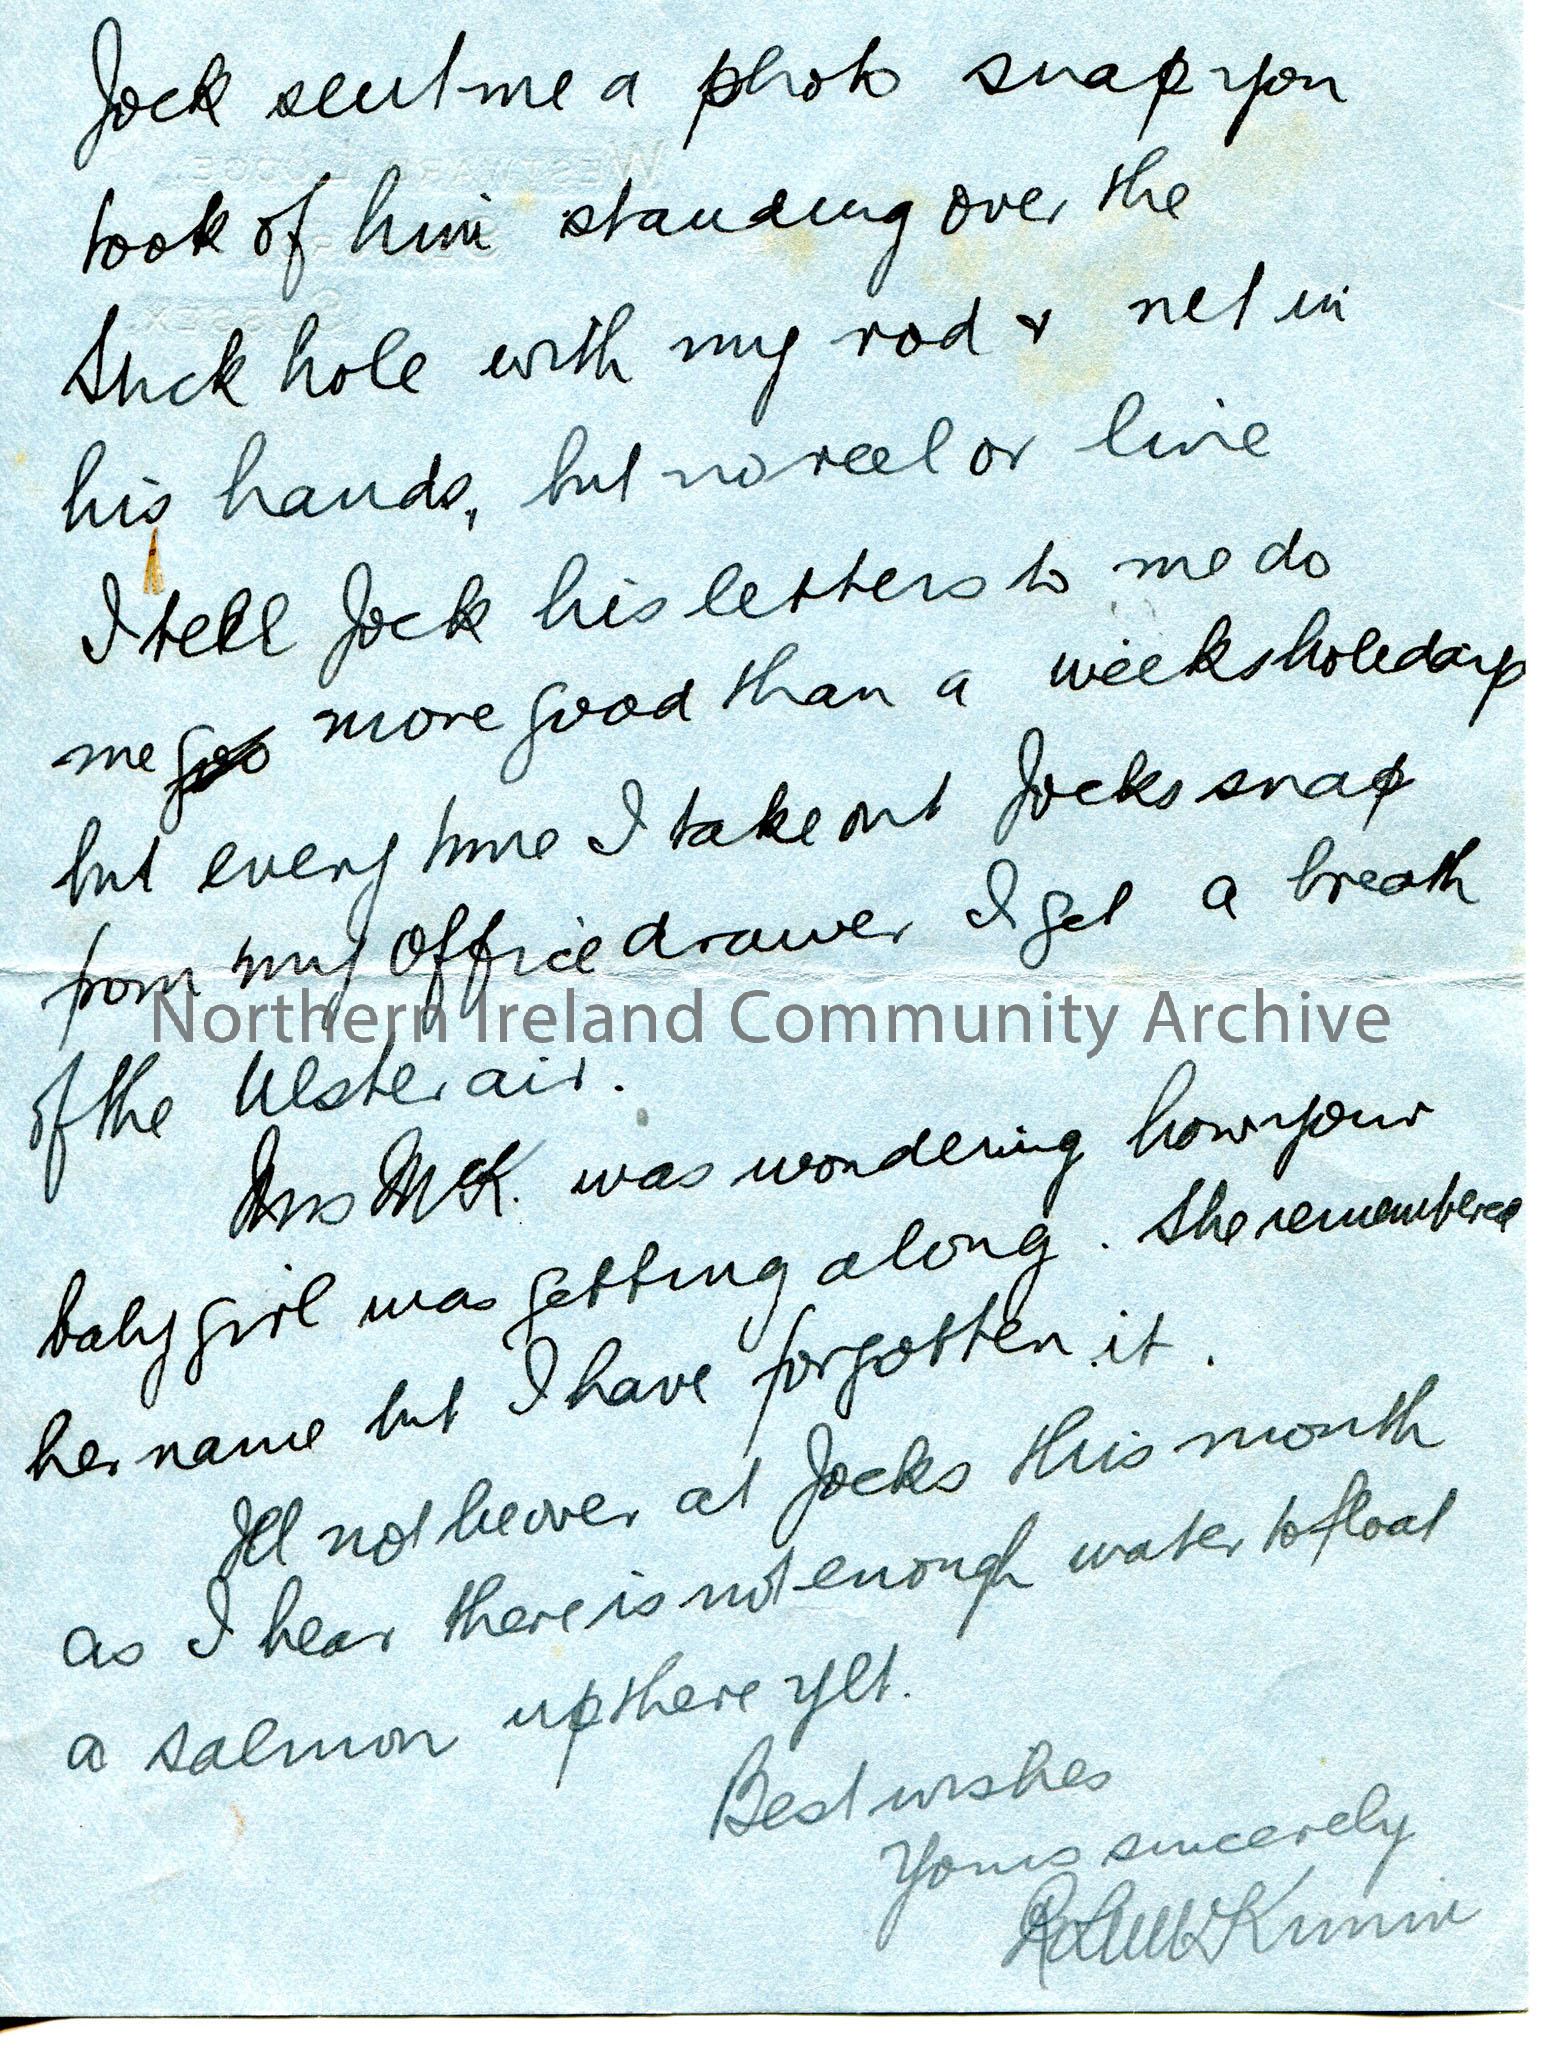 Jock sent me a photo snap you
took of him standing over the
Stick hole with my rod & net in
his hands, but no reel or line
I tell Jock his letters to me do
me more good than a weeks holedays
but every time I take out Jocks snap
from my office drawer I get a breath
Northern Ireland Community Archive
of the Ulster air.
Mrs McK. was wondering how your
baby girl was getting along. She remembered
her name but I have forgotten it.
Ill not be over at Jocks this month
as I hear there is not enough water to float
a salmon up there yet.
Best wishes
Yours sincerely